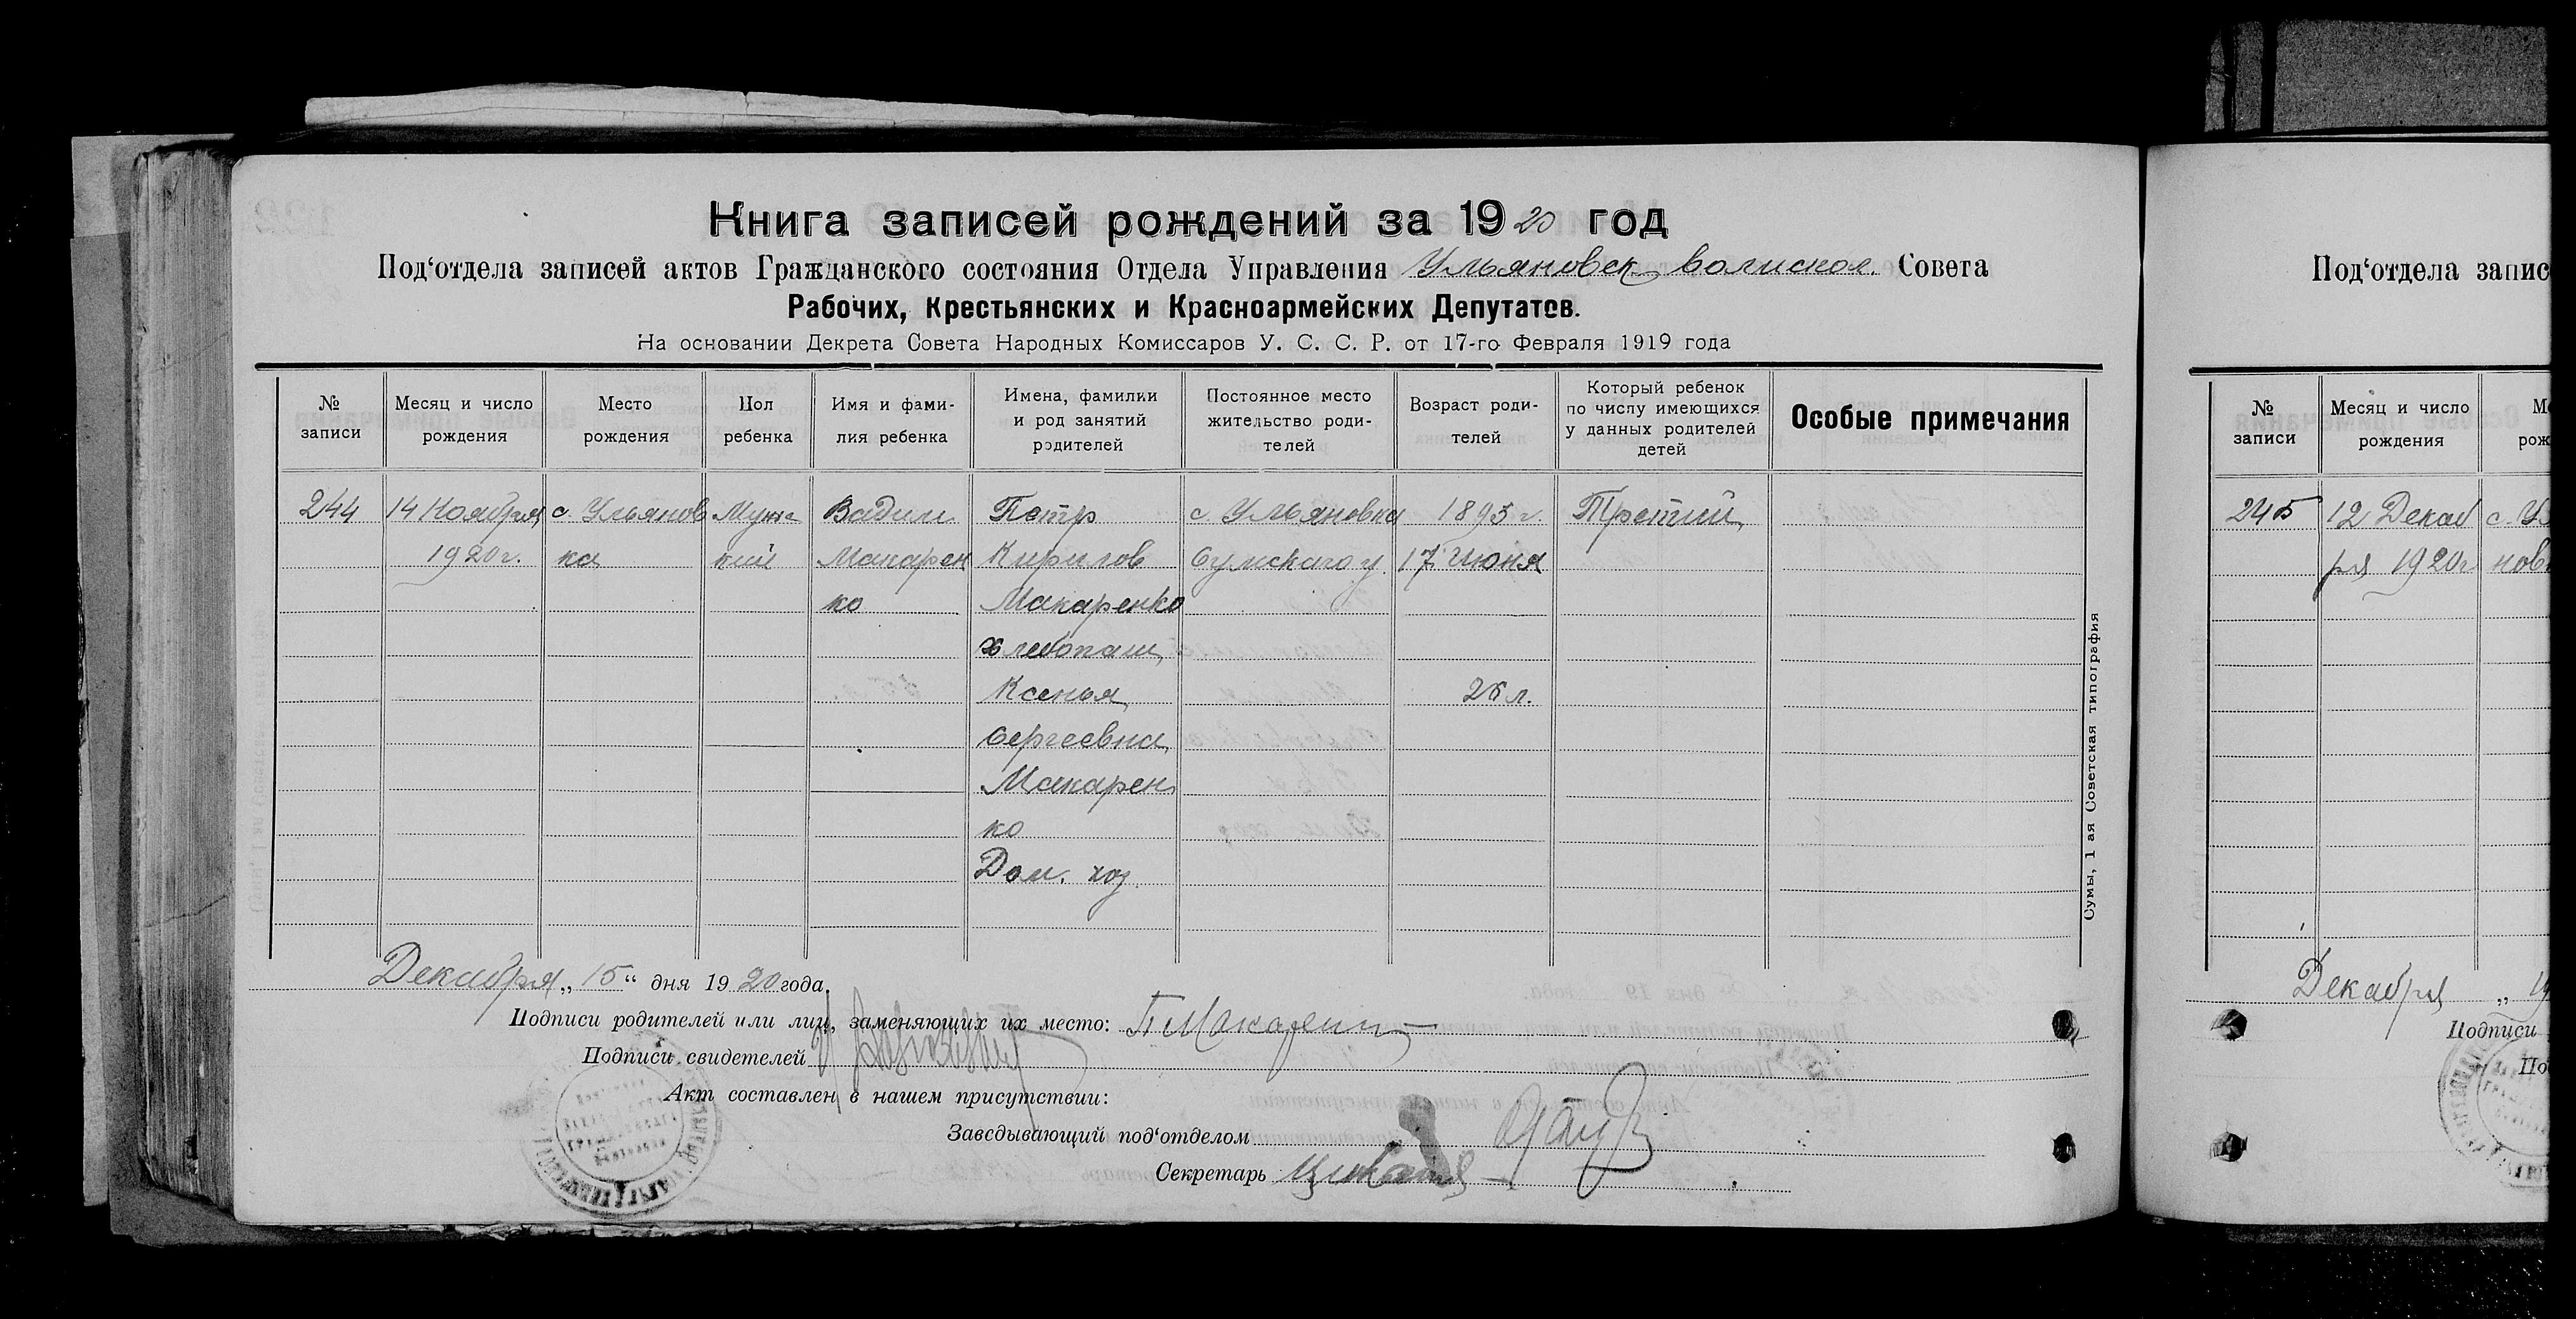 Книга записей рождений за 1920 год
Под‘отдела записей актов Гражданского состояния Отдела Управления Ульяновск волиской Совета
Рабочих, Крестьянских и Красноармейских Депутатов.
На основании Декрета Совета Народных Комиссаров У. С. С. Р. от 17-го Февраля 1919 года
№ записи
Месяц и число рождения
Место рождения
Пол ребенка
Имя и фами-
лия ребенка
Имена, фамилии
и род занятий
родителей
Постоянное место
жительство роди-
телей
Возраст роди-
телей
Который ребенок
по числу имеющихся
у данных родителей
детей
Особые примечания
244 14 Ноября с. Ульянов Мужс Вадим Петр с. Ульяновка 1895 г. Третий
1920 г. ка кий Макарен Кирилов Сумскаго у. 17 июня
ко Макаренко
хлебопаш
Ксенья 26 л.
Сергеевна
Макарен
ко
Дом. хоз.
Декабря „15“ дня 1920 года.
Подписи родителей или лиц, заменяющих их место: П Макаренко
Подписи свидетелей
Акт составлен в нашем присутствии:
Заведывающий под‘отделом
Секретарь
Сумы, 1 ая Советская типография
Под‘отдела запис
№ записи
Месяц и число рождения
245 12 Декаб с. Ул
ря 1920 г нов
Декабря „
Подписи